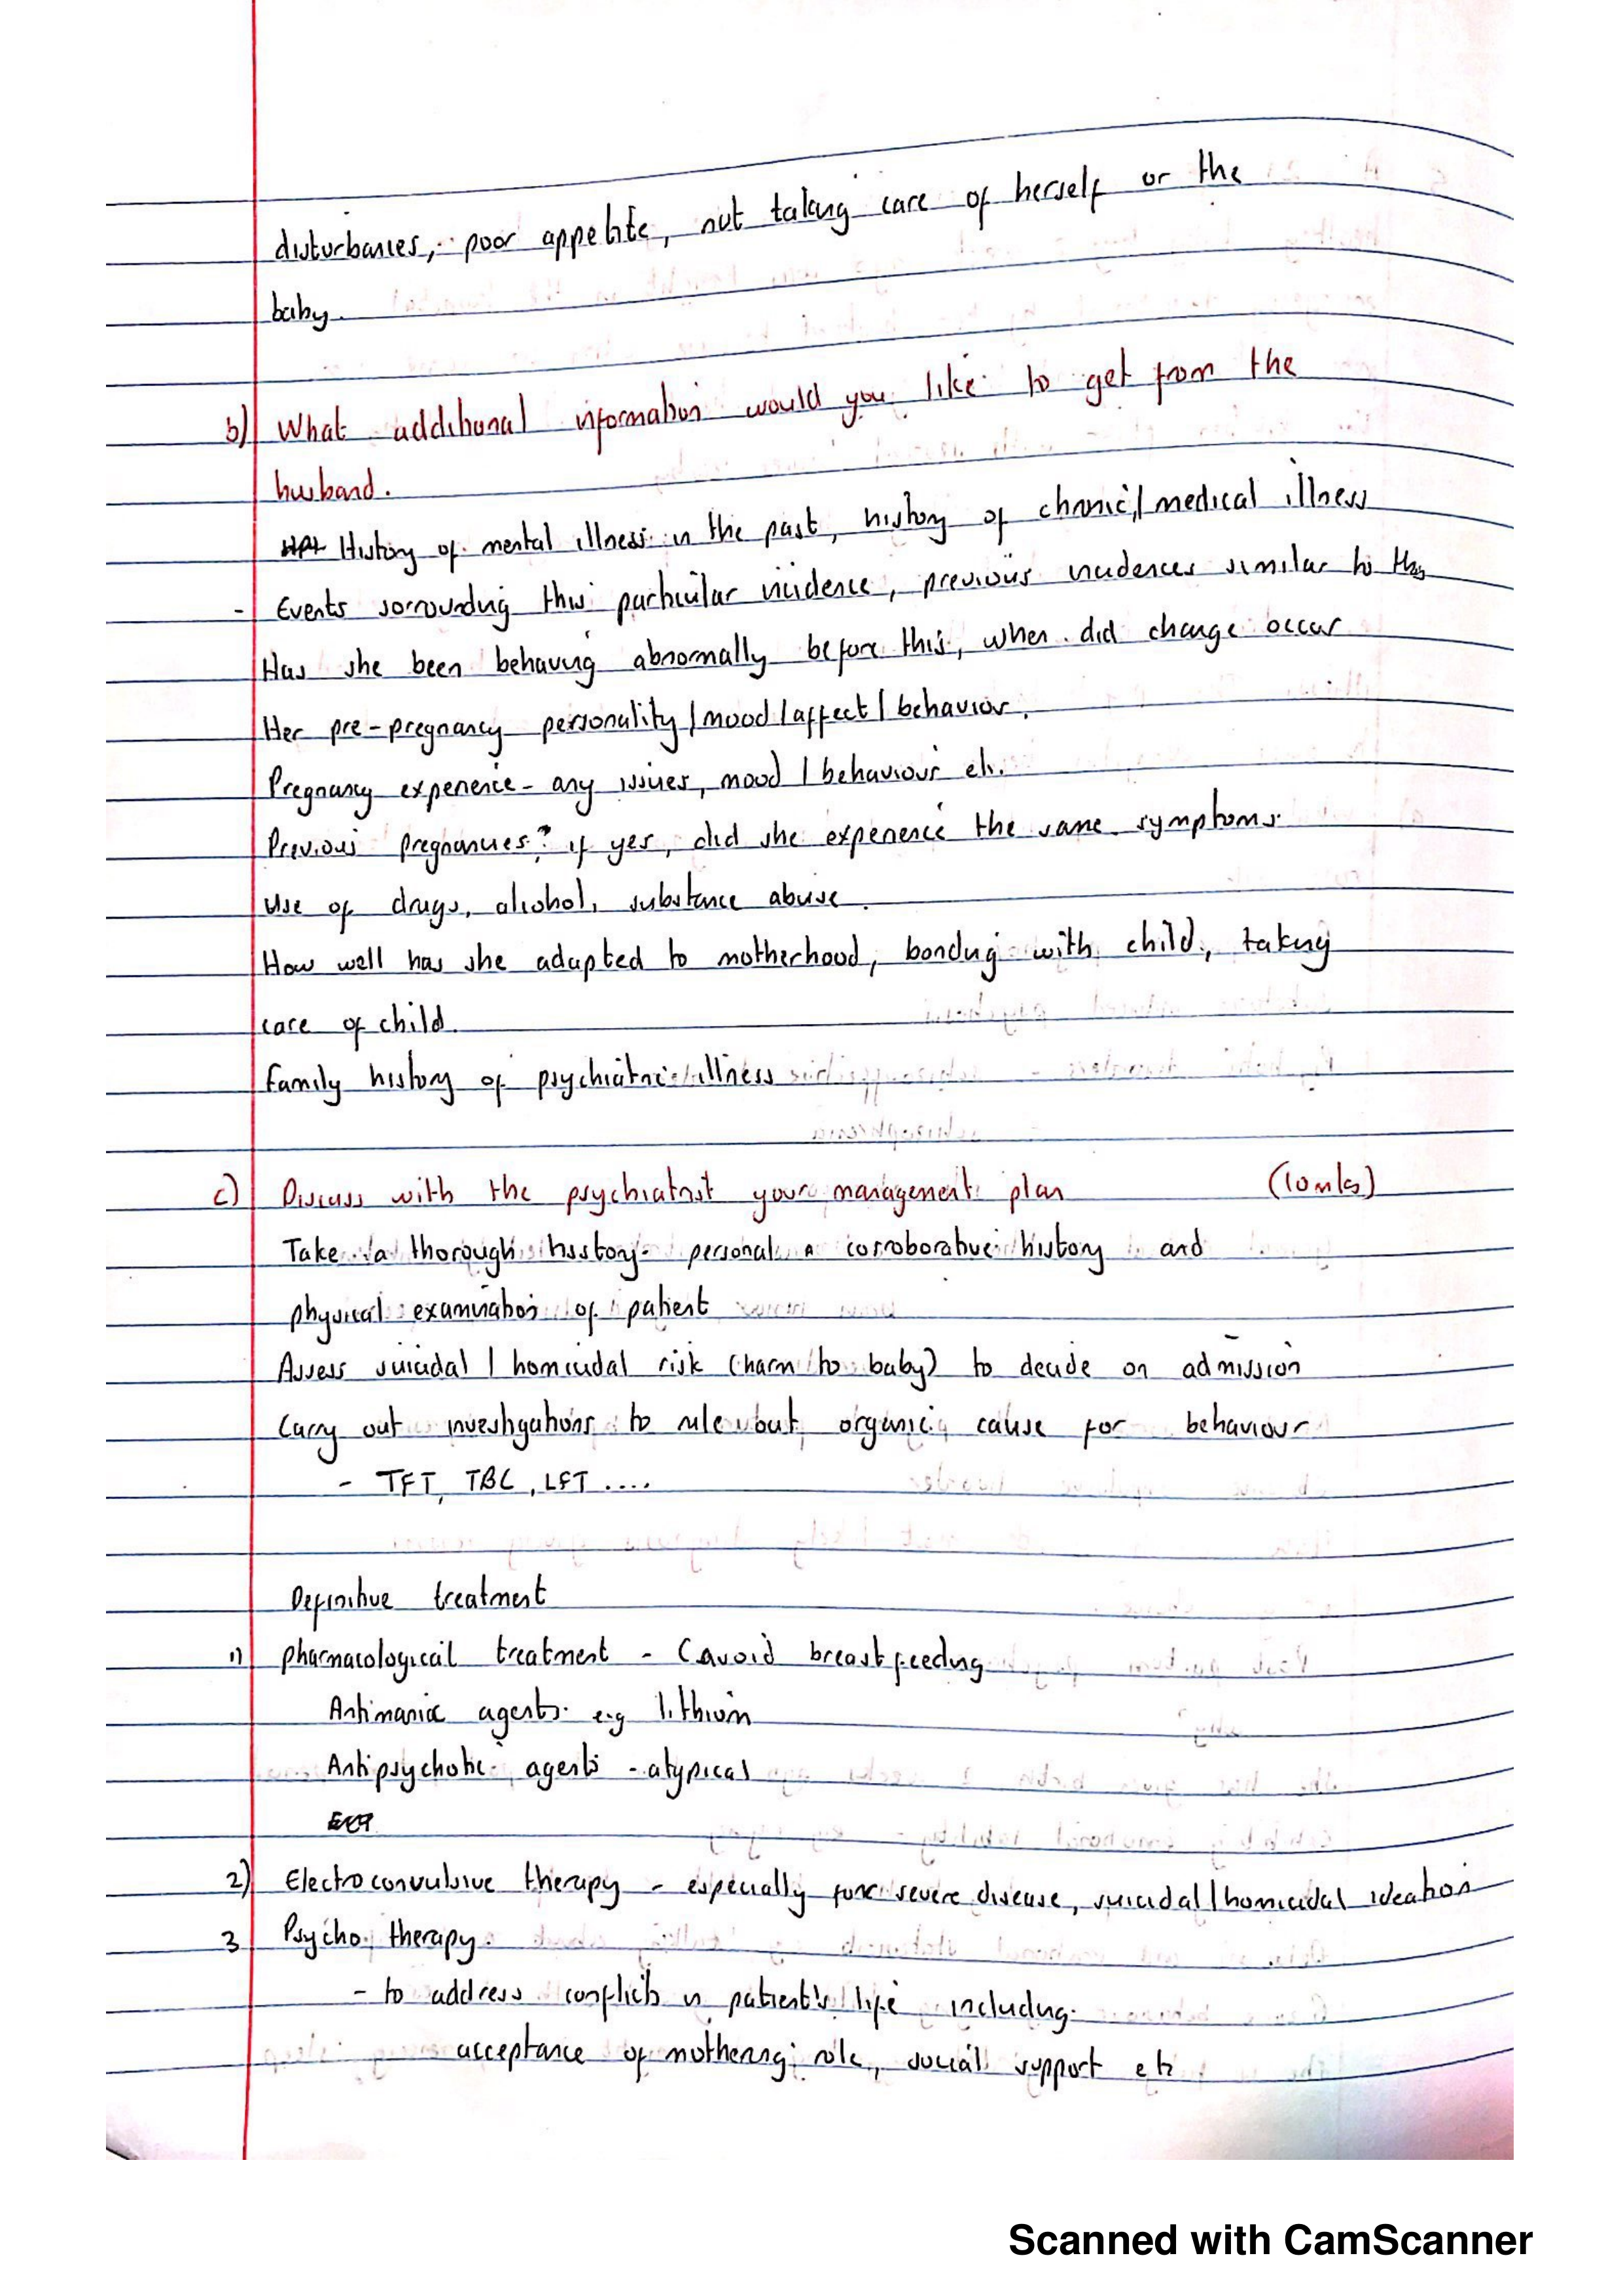 disturbances, poor appetite, not taking care of herself or the
baby.
b) What additional information would you like to get from the
husband.
History of mental illness in the past, history of chronic/medical illness
- Events sorrounding this particular incidence, previous incidences similar to this
Has she been behaving abnormally before this, when did change occur
Her pre-pregnancy personality/mood/affect/behavior.
Pregnancy experience - any issues, mood/behaviour etc.
Previous pregnancies? if yes, did she experience the same symptoms.
Use of drugs, alcohol, substance abuse.
How well has she adapted to motherhood, bonding with child, taking
care of child.
Family history of psychiatric illness
c) Discuss with the psychiatrist your management plan (10mks)
Take a thorough history - personal n corroborative history and
physical examination of patient
Assess suicidal/homicidal risk (harm to baby) to decide on admission
Carry out investigations to rule out organic cause for behaviour
- TFT, TBC, LFT ....
Definitive treatment
1) pharmacological treatment - (avoid breastfeeding
Antimanic agents e.g lithium
Antipsychotic agents - atypical
2) Electroconvulsive therapy - especially for severe disease, suicidal/homicidal ideation
3 Psychotherapy.
- to address conflicts in patient's life including
acceptance of mothering role, social support etc
Scanned with CamScanner